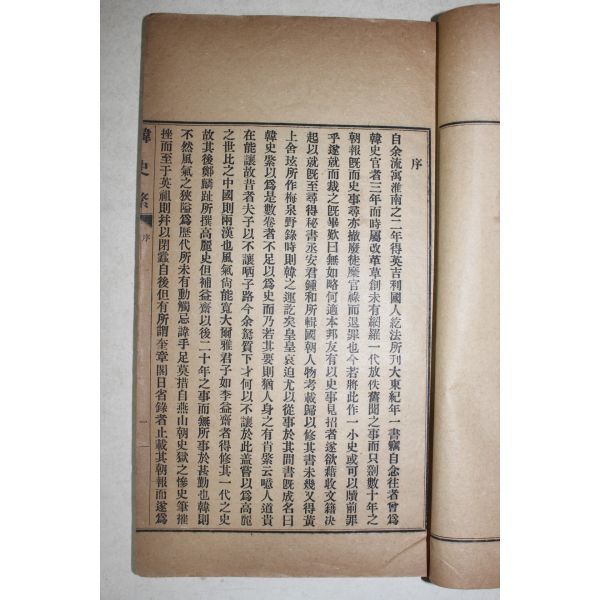 序
自余流寓淮南之二年得英吉利國人紇法所刋大東紀年一書竊自念往者曾爲
韓史官者三年而時屬改革草創未有網羅一代放佚舊聞之事而只剳數十年之
朝報旣而史事尋亦撤廢徒縻官祿而退罪也今若將此作一小史或可以贖前罪
乎遂就而裁之旣畢歎曰無如略何適本邦友有以史事見招者遂欲藉收文籍决
起以就旣至尋得秘書丞安君鍾和所輯國朝人物考載歸以修其書未幾又得黃
上舍玹所作梅泉野錄時則韓之運訖矣皇皇哀迫尤以從事於其間書旣成名曰
韓史綮以爲是數卷者不足以爲史而乃若其要則猶人身之有肯綮云噫人道貴
在能讓故昔者夫子以不讓哂子路今余駑質下才何以不讓於此盖嘗以爲高麗
之世比之中國則兩漢也風氣尙能寬大爾雅君子如李益齋者得修其一代之史
故其後鄭麟趾所撰高麗史但補益齋以後二十年之事而無所事於甚勤也韓則
不然風氣之狹隘爲歷代所未有動觸忌諱手足莫措自燕山朝史獄之慘史筆摧
挫而至于英祖則幷以閉蠶自後但有所謂奎章閣日省錄者止載其朝報而遂爲
韓史綮
序
一